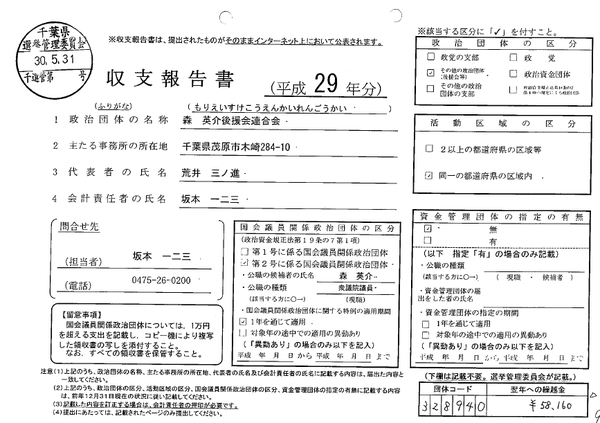 千葉県
選挙管理委員会
30.5.31
千選管第 号
※収支報告書は、提出されたものがそのままインターネット上において公表されます。
収支報告書 (平成 29 年分)
(ふりがな) (もりえいすけこうえんかいれんごうかい)
1 政治団体の名称 森 英介後援会連合会
2 主たる事務所の所在地 千葉県茂原市木崎284-10
3 代表者の氏名 荒井 三ノ進
4 会計責任者の氏名 坂本 一二三
問合せ先
(担当者) 坂本 一二三
(電話) 0475-26-0200
【留意事項】
国会議員関係政治団体については、1万円
を超える支出を記載し、コピー機により複写
した領収書の写しを添付すること。
なお、すべての領収書を保管すること。
国会議員関係政治団体の区分
(政治資金規正法第19条の7第1項)
□ 第1号に係る国会議員関係政治団体
☑ 第2号に係る国会議員関係政治団体
・公職の候補者の氏名 森 英介
・公職の種類 衆議院議員
(該当する方に○) (現職)
・国会議員関係政治団体に関する特例の適用期間
☑ 1年を通じて適用
□ 対象年の途中での適用の異動あり
(「異動あり」の場合のみ以下を記載)
平成 年 月 日から平成 年 月 日まで
※該当する区分に「✓」を付すこと。
政治団体の区分
□ 政党の支部
□ 政党
☑ その他の政治団体
(後援会等)
□ 政治資金団体
□ その他の政治団体
の支部
活動区域の区分
□ 2以上の都道府県の区域等
☑ 同一の都道府県の区域内
資金管理団体の指定の有無
☑ 無
□ 有
(以下 指定「有」の場合のみ記載)
・公職の種類
(該当する方に○) (現職・候補者)
・資金管理団体の届
出をした者の氏名
・資金管理団体の指定の期間
□ 1年を通じて適用
□ 対象年の途中での適用の異動あり
(「異動あり」の場合のみ以下を記載)
平成 年 月 日から平成 年 月 日まで
注意(1)上記のうち、政治団体の名称、主たる事務所の所在地、代表者の氏名及び会計責任者の氏名に記載する内容は、届出た内容と
一致してください。
(2)上記のうち、政治団体の区分、活動区域の区分、国会議員関係政治団体の区分、資金管理団体の指定の有無に記載する内容
は、前年12月31日現在の状況に従い記載してください。
(3)記載した内容を訂正する場合は、会計責任者の押印が必要です。
(4)提出にあたっては、記載されたページのみ提出してください。
(下欄は記載不要。選挙管理委員会が記載。)
団体コード 翌年への繰越金
328940 ¥58,160